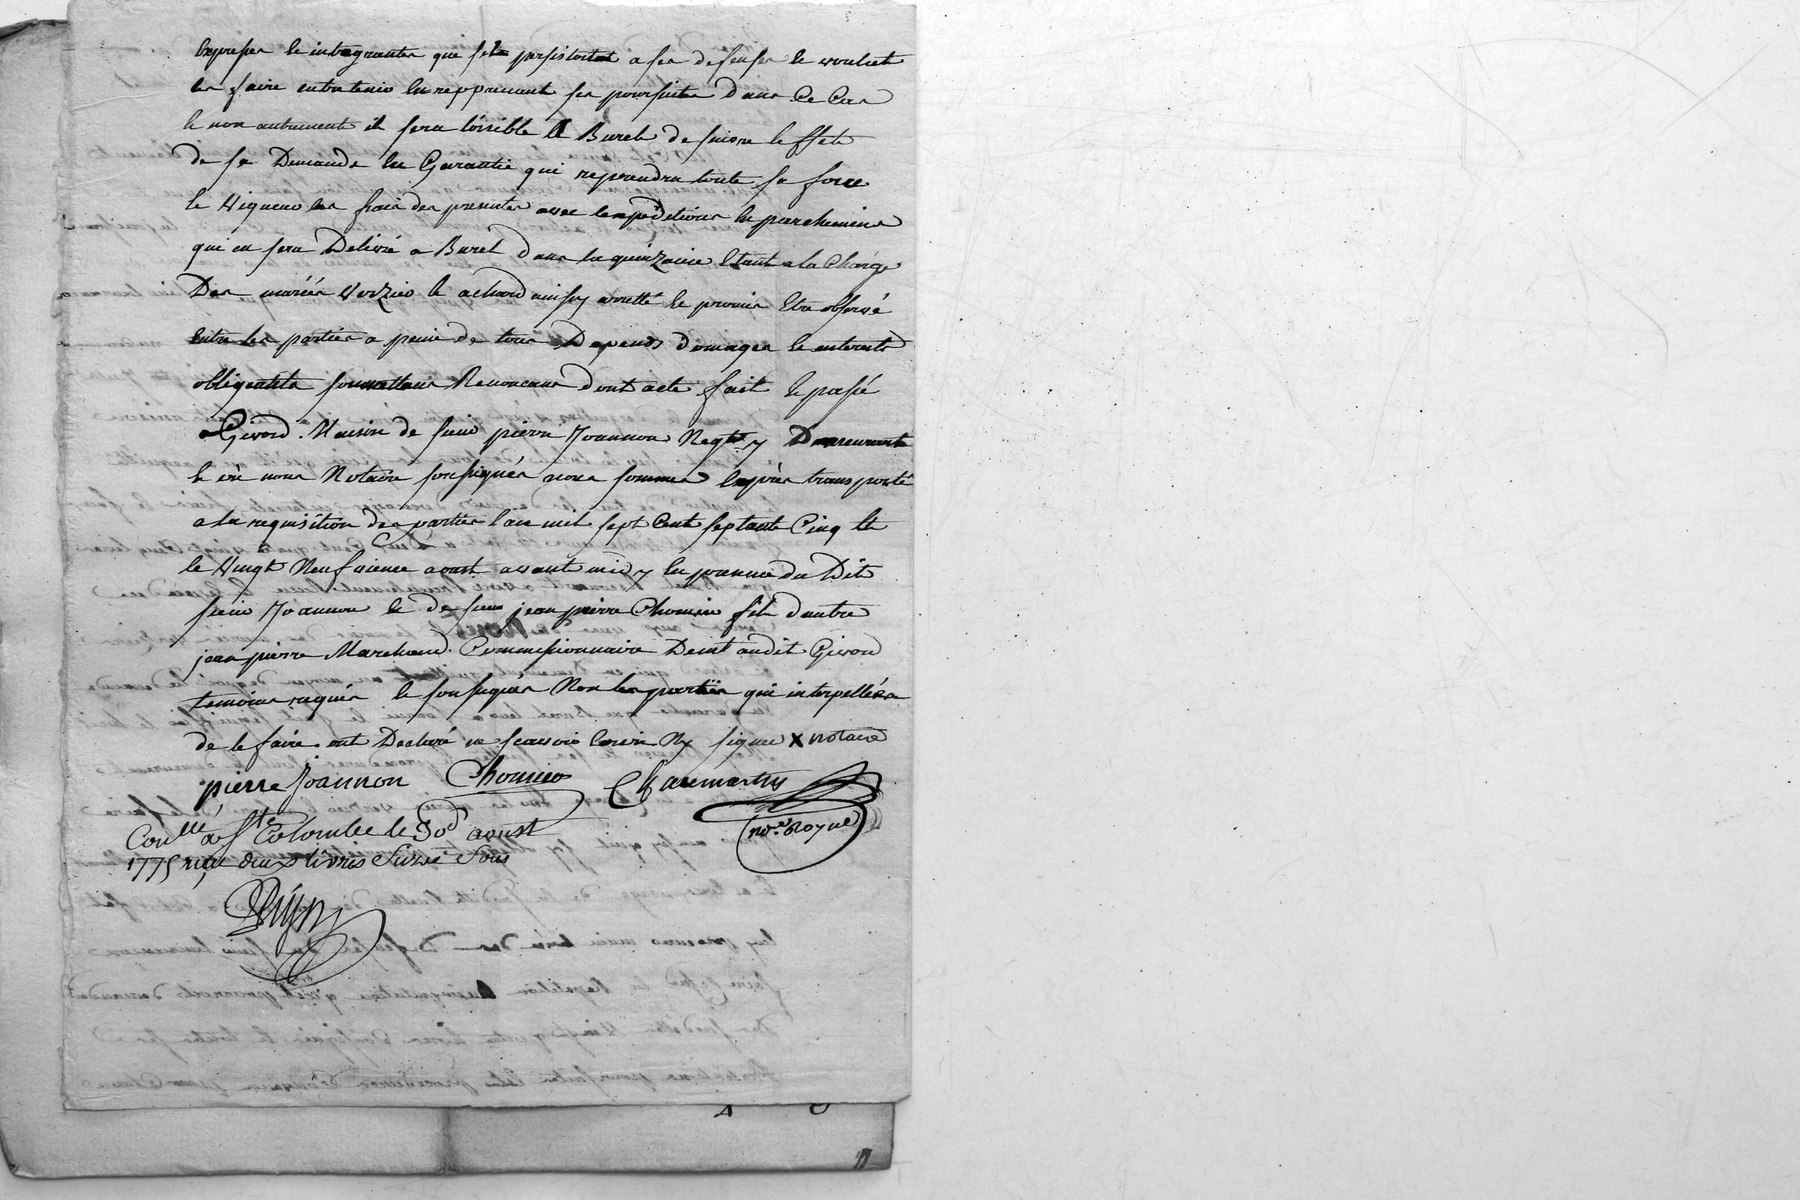 expresse et integrantes que s'il persistoit a ses defenses et vouloit
les faire entretenir en reprenant ses poursuites dans ce cas
et non autrement il sera loisible a Burel de suivre leffet
de sa Demande en Garantie qui reprendra toute sa force
et Vigueur les frais des presentes avec lexpedition en parchemin
qui en sera Delivré a Burel dans la quinzaine Etant a la Charge
Des mariés Verzier et achard ainsy arretté et promis Etre observé
Entre les parties a peine de tous Depends domages et interets
obligeants soumettans Renoncans dont acte fait et passé
a Givord Maison de sieur pierre Joannon Negt y Demeurant
et où nous Notaire soussignés nous sommes exprès transporté
a la requisition des parties l'an mil sept Cent septante Cinq et
le Vingt Neufvieme aoust avant midy en presence du Dit
sieur Joannon et de sieur jean pierre Chomier fils dautre
jean pierre Marchand Commissionnaire Demt audit Givord
temoins requis et soussignés Non les parties qui interpellées
de le faire ont Declaré ne scavoir Ecrire Ny signer X notaire
pierre Joannon Chomier Charmartin
nore Royal
Conllé a Ste Colombe le 30e aoust
1775 reçu deux livres Seize Sous